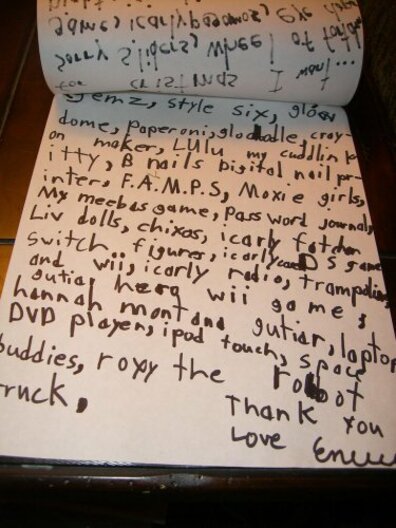 for cristmas I want...
Sorry Sliders, wheel of
game, icarly
gemz, style six, glow
dome, paperoni, glodoodle, cray-
on maker, LULU my cuddlin k-
itty, B nails Digital nail pr-
inter, F.A.M.P.S, Moxie girls,
My meebas game, Pass word journal,
Liv dolls, chixos, icarly
switch figures, icarly DS game
and wii, icarly radio, trampoline
gutiar hero wii game,
hannah montana gutiar, laptop
DVD player, ipod touch, space
buddies, roxy the robot
truck,
Thank You
Love